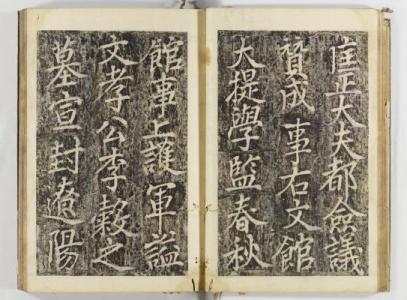 匡正大夫都僉議
賛成事右文館
大提學監春秋
館事上護軍謚
文孝公李穀之
墓宣封遼陽